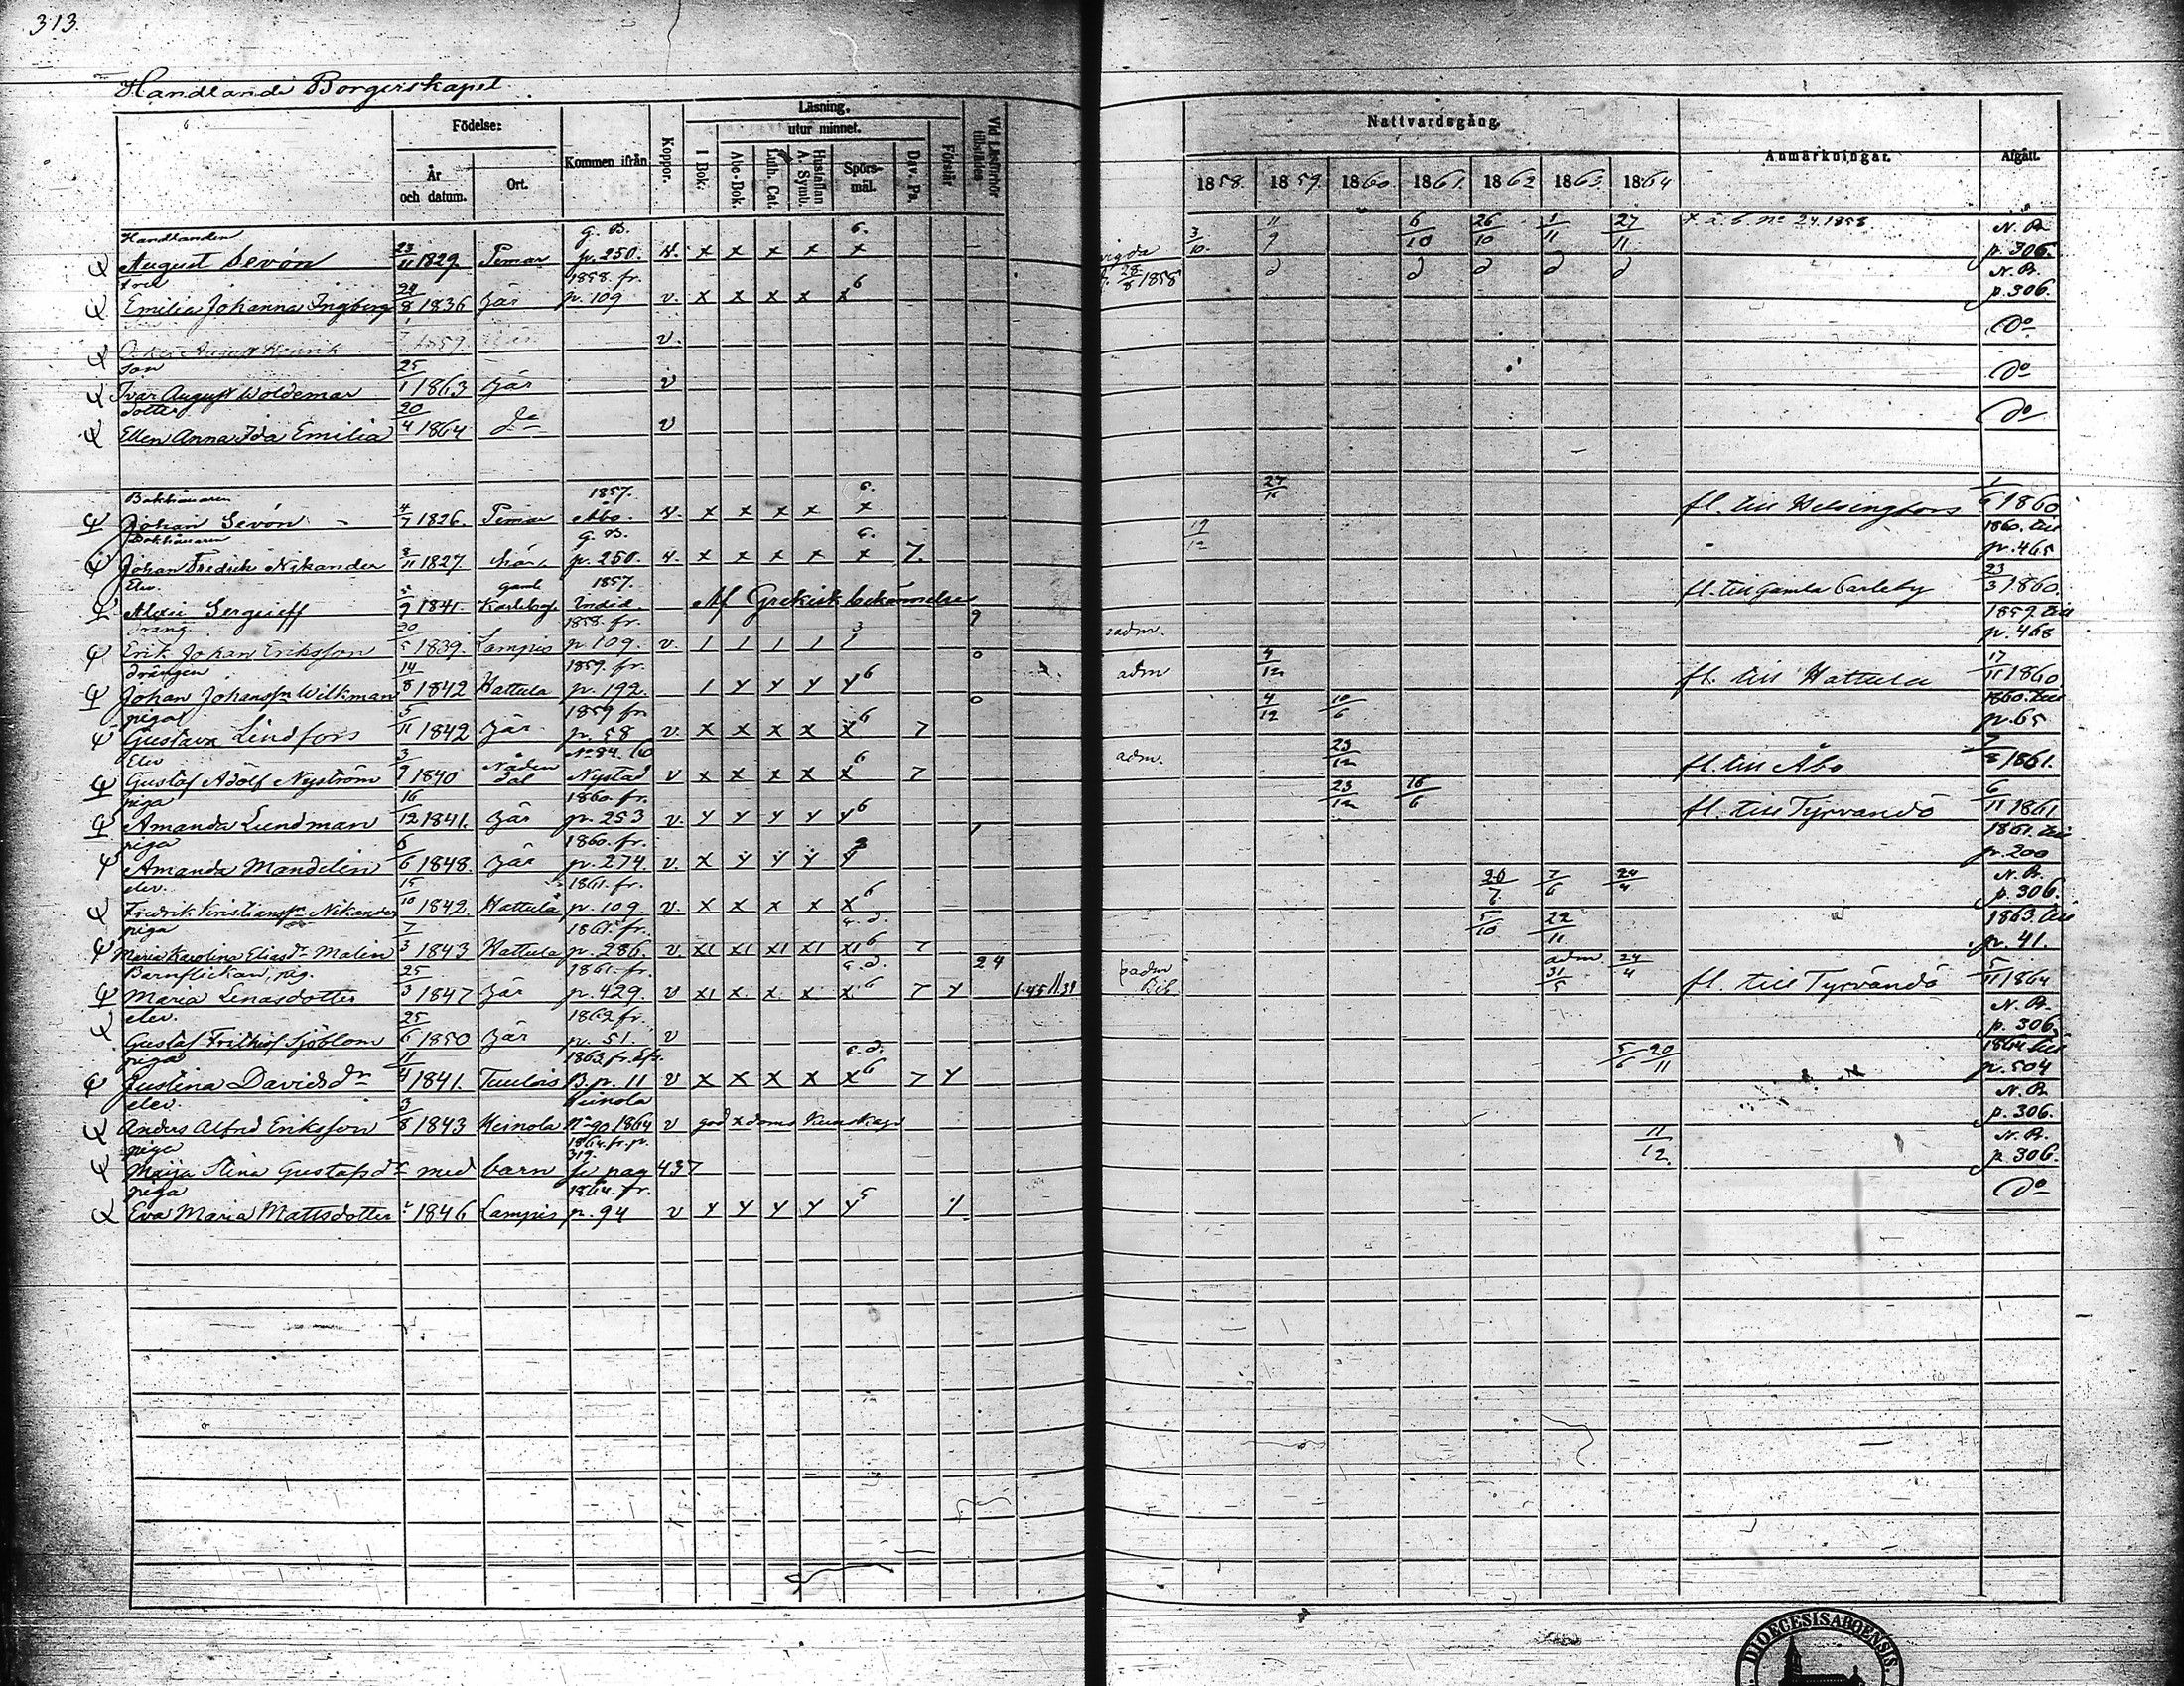 313.
Handlande Borgerskapet
Födelse:
År och datum.
Ort.
Kommen ifrån
Koppor.
Läsning.
utur minnet.
I Bok.
Abc-Bok.
Luth. Cat.
Hustaflan A. Symb.
Spörsmål.
Dav. Ps.
Förstår
Vid Läsförhör tillstädes
Nattvardsgång.
1858. 1859. 1860. 1861. 1862 1863. 1864
Anmärkningar.
Afgått.
Handlanden g. B. 6. 3/10. 11/9 6/10 26/10 1/11 27/11 N. B.
August Sevón 23/11 1829. Pemar p. 250. v. x x x x x p. 306.
1858. fr. 28/8 1858 N. B.
Emilia Johanna Ingberg 24/8 1836 här p. 109 v. x x x x x 6 p. 306.
August Henrik 1859. v. Do
son 25
Ivar August Woldemar /1 1863 här v Do
dotter 20
Ellen Anna Ida Emilia /4 1864 do v Do
Bokhållaren 1857. 6. 27
Johan Sevón 4/7 1826. Pemar Åbo. v. x x x x x fl. till Helsingfors 1/6 1860
Bokhållaren g. B. 6. 1860. till
Johan Fredrik Nikander /11 1827. p. 250. v. x x x x x 7. p. 465
Elev. gamla 1857. 23
Alexei Sergeieff /9 1841. Karleby Af Grekisk bekännelse fl. till Gamla Carleby /3 1860.
Dräng 20 1858. fr. 3 9 1859. till
Erik Johan Eriksson /5 1839. Lampis p. 109. v. / / / / / p. 468
drängen 14 1859. fr. 0 adm 4/12 17
Johan Johansson Willman /8 1842 Hattula p. 192. / y y y y 6 fl. till Hattula /11 1860
piga 5 1859 fr 0 4/12 10/6 1860. till
Gustava Lindfors /11 1842 här p. 58 v. x x x x x 6 7 p. 65
Elev 3 Nådendal No 84. 60 adm. 23/12
Gustaf Adolf Nyström /9 1840 Nystad v x x x x x 6 7 fl. till Åbo 1861.
piga 16 1860. fr. 23/12 16/6 6
Amanda Lundman /12 1841. här p. 253 v. y y y y y 6 fl. till Tyrvändö /11 1861
piga 6 1860. fr. 1 1861. till
Amanda Mandelin /6 1848. här p. 274. v. x y y y y p. 200
elev. 15 1861. fr. 20/7. 7/6 24/4 N. B.
Fredrik Kristiansson Nikander /10 1842. Hattula p. 109 v. x x x x x 6 p. 306.
piga 7 1861. fr. 5/10 22/11 1863. till
Maria Karolina Eliasdr Malin /3 1843 Hattula p. 286. v. x1 x1 x1 x1 x1 6 7 p. 41.
Barnflickan, pig. 25 1861. fr. 24 adm 31/5 24/4 5
Maria Lenasdotter /3 1847 här p. 429. v x1 x x x x 6 7 y fl. till Tyrvändö /11 1864
elev. 25 1862 fr. N. B.
Gustaf Frithiof Sjöblom /6 1850 här p. 51. v p. 306.
piga 11 1863. fr. 5/6 20/11 1864 till
Justina Davidsdr /4 1841. Tuulois B. p. 11 v x x x x x 6 7 y p. 504
elev. 3 Heinola N. B.
Anders Alfred Eriksson /8 1843 Heinola No 90 1864 v god x doms kunskap p. 306.
piga 1864. fr. p. 312. 11/12. N. B.
Maija Stina Gustafsdr med barn se pag 437 p. 306.
piga 1864. fr. Do
Eva Maria Mattsdotter 1846 Lampis p. 94 v y y y y y 5
DIOECESIS ABOENSIS.